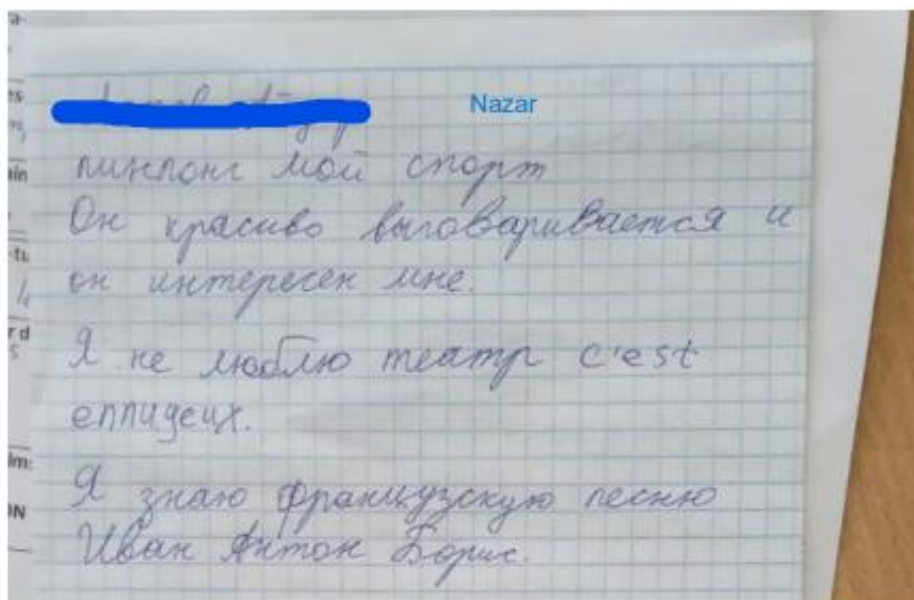 Nazar
пинпонг мой спорт
Он красиво выговаривается и
он интересен мне.
Я не люблю театр c'est
еппиуеих.
Я знаю французскую песню
Иван Антон Борис.